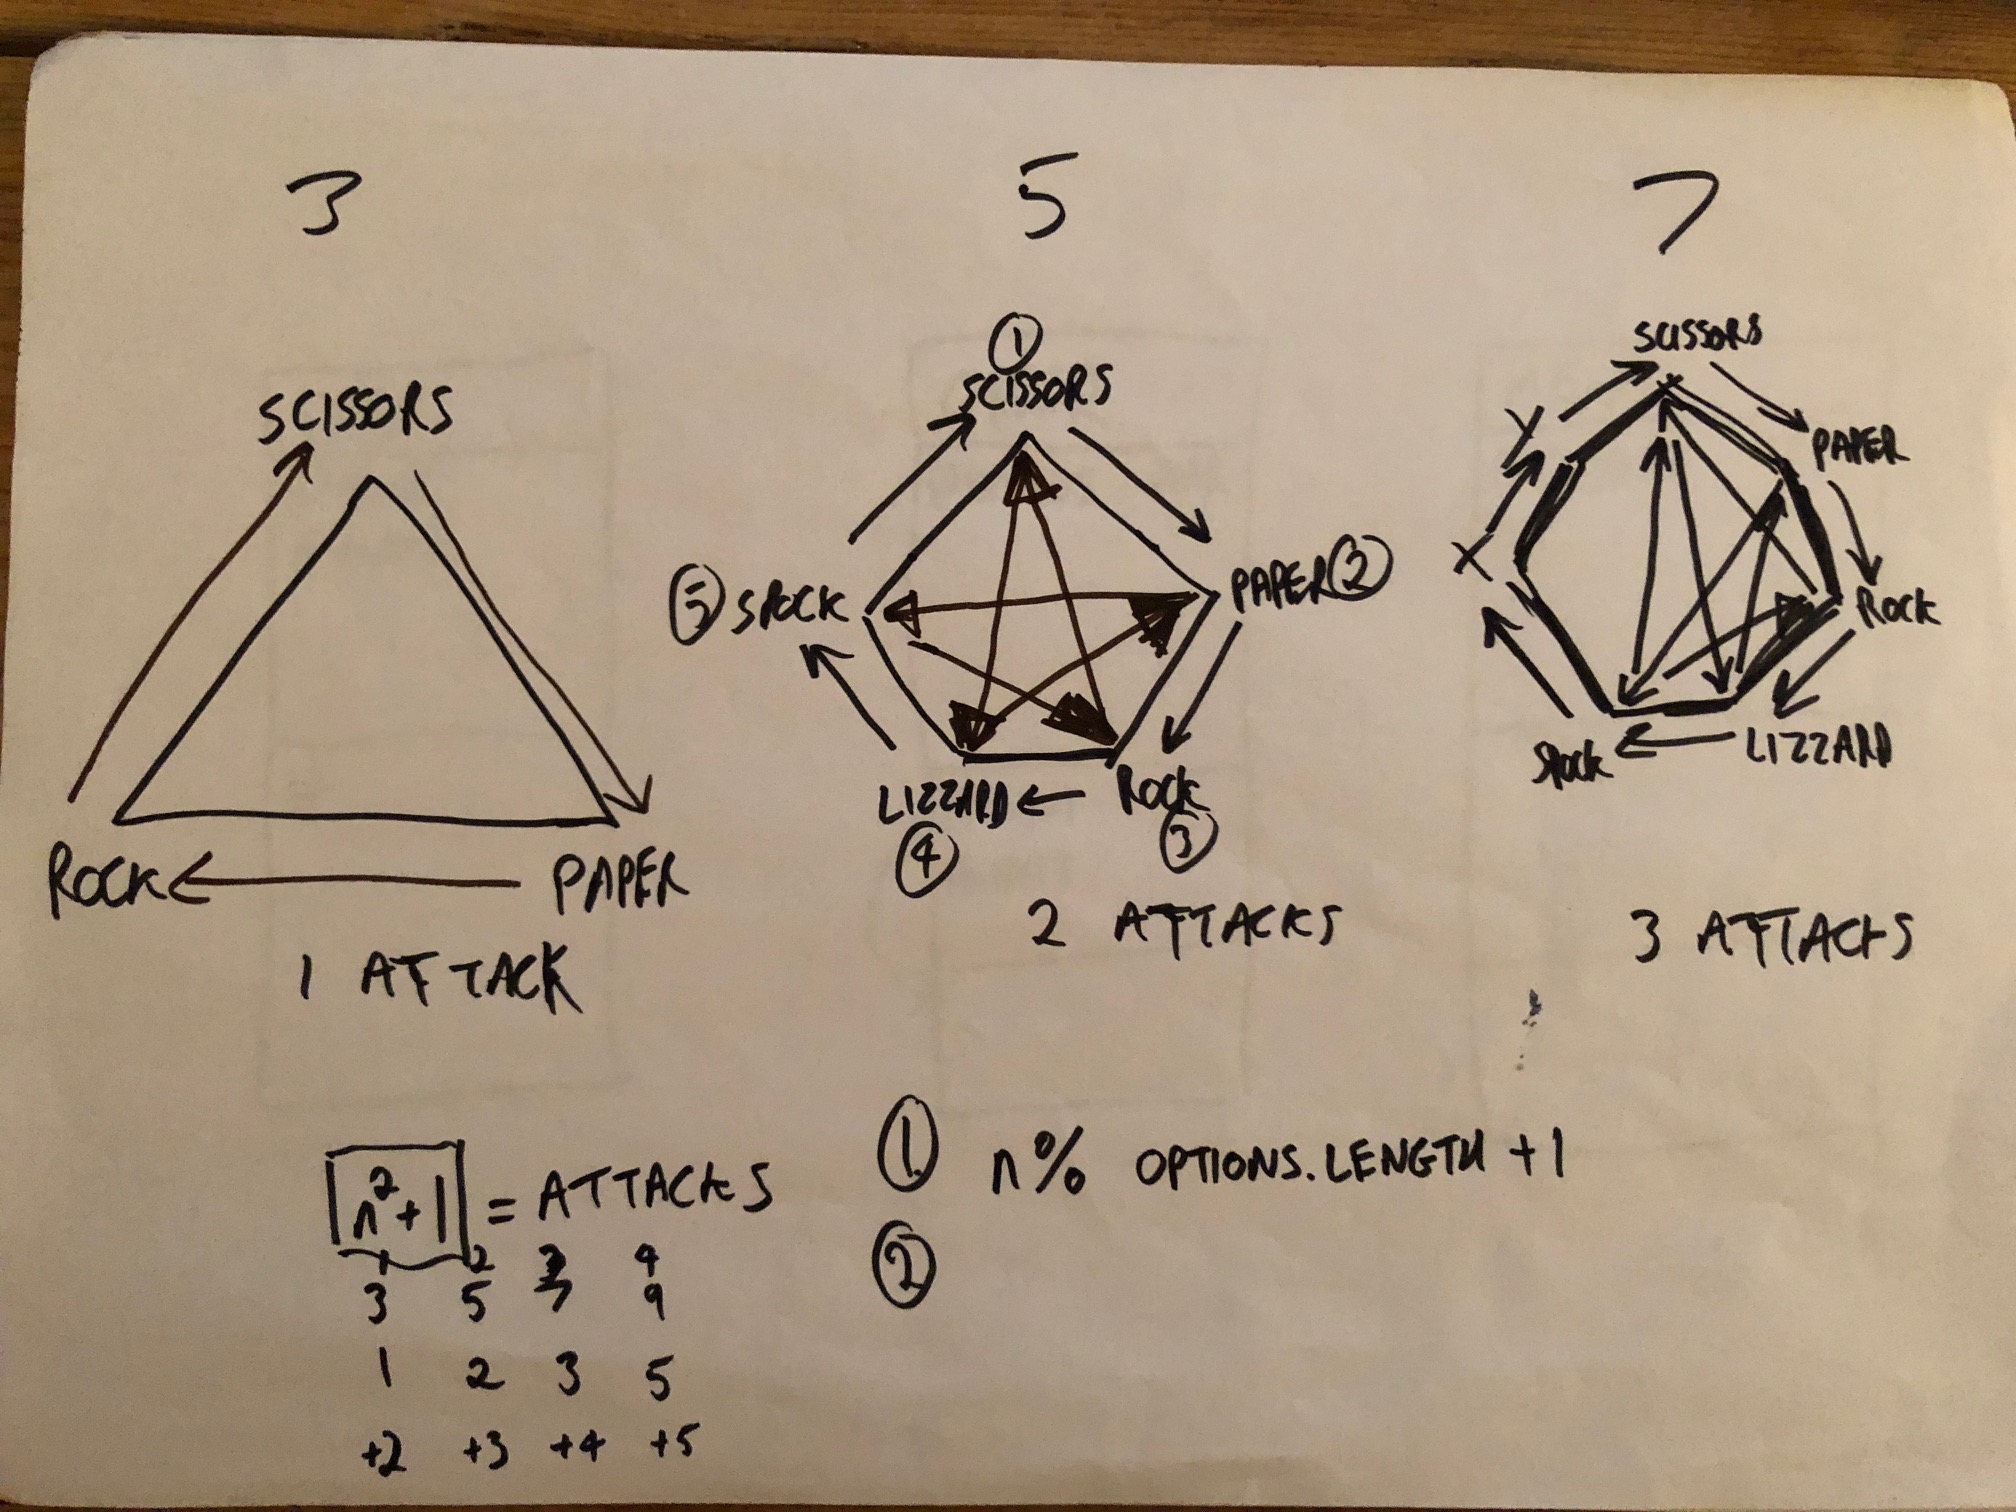 3
SCISSORS
ROCK
PAPER
1 ATTACK
5
①
SCISSORS
⑤ SPOCK
PAPER ②
LIZZARD
④
ROCK
③
2 ATTACKS
7
SCISSORS
Y
PAPER
X
ROCK
SPOCK
LIZZARD
3 ATTACKS
n²+1 = ATTACKS
1 2 3 4
3 5 7 9
1 2 3 5
+2 +3 +4 +5
① n% OPTIONS.LENGTH +1
②